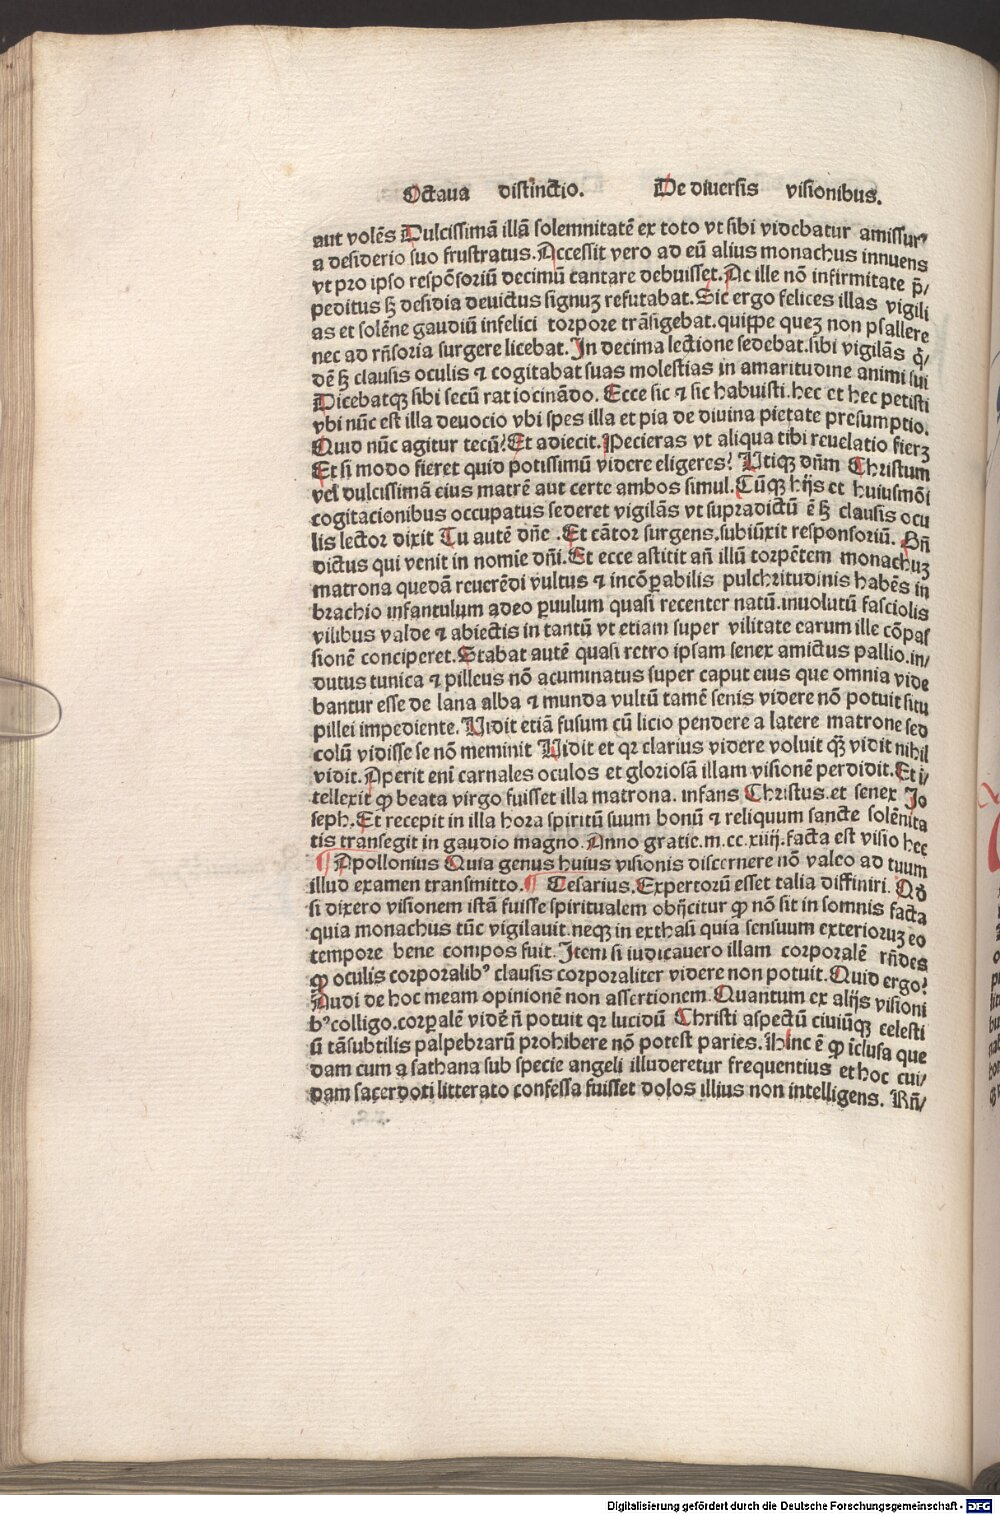 Octaua distinctio. De diuersis visionibus.
aut volēs Dulcissimā illā solemnitatē ex toto vt sibi videbatur amissurꝰ
a desiderio suo frustratus. Accessit vero ad eū alius monachus innuens
vt pro ipso respōsoriū decimū cantare debuisset. Ac ille nō infirmitate p̄/
peditus sꝫ desidia deuictus signuꝫ refutabat. Sic ergo felices illas vigili
as et solēne gaudiū infelici torpore trāsigebat. quippe queꝫ non psallere
nec ad rñsoria surgere licebat. In decima lectione sedebat. sibi vigilās q̄/
dē sꝫ clausis oculis ⁊ cogitabat suas molestias in amaritudine animi sui
Dicebatqꝫ sibi secū ratiocinādo. Ecce sic ⁊ sic habuisti. hec et hec petisti
vbi nūc est illa deuocio vbi spes illa et pia de diuina pietate presumptio.
Quid nūc agitur tecū? Et adiecit. Pecieras vt aliqua tibi reuelatio fierꝫ
Et si modo fieret quid potissimū videre eligeres? Utiqꝫ dn̄m Christum
vel dulcissimā eius matrē aut certe ambos simul. Cūqꝫ hijs et huiusmōi
cogitacionibus occupatus sederet vigilās vt supradictū ē sꝫ clausis ocu
lis lector dixit Tu autē dn̄e. Et cātor surgens. subiūxit responsoriū. Bn̄
dictus qui venit in nomie dn̄i. Et ecce astitit an̄ illū torpētem monachuꝫ
matrona quedā reuerēdi vultus ⁊ incōꝑabilis pulchritudinis habēs in
brachio infantulum adeo ꝑuulum quasi recenter natū. inuolutū fasciolis
vilibus valde ⁊ abiectis in tantū vt etiam super vilitate earum ille cōpas
sionē conciperet. Stabat autē quasi retro ipsam senex amictus pallio. in/
dutus tunica ⁊ pilleus nō acuminatus super caput eius que omnia vide
bantur esse de lana alba ⁊ munda vultū tamē senis videre nō potuit situ
pillei impediente. Uidit etiā fusum cū licio pendere a latere matrone sed
colū vidisse se nō meminit Uidit et qꝛ clarius videre voluit qꝫ̄ vidit nihil
vidit. Aperit eni carnales oculos et gloriosā illam visionē perdidit. Et i/
tellexit ꝙ beata virgo fuisset illa matrona. infans Christus. et senex Jo
seph. Et recepit in illa hora spiritū suum bonū ⁊ reliquum sancte solēnita
tis transegit in gaudio magno. Anno gratie. m. cc. xiiij. facta est visio hec
¶ Apollonius Quia genus huius visionis discernere nō valeo ad tuum
illud examen transmitto. ¶ Cesarius. Expertorū esset talia diffiniri. Qd̄
si dixero visionem istā fuisse spiritualem obijcitur ꝙ nō sit in somnis facta
quia monachus tūc vigilauit. neqꝫ in exthasi quia sensuum exterioruꝫ eo
tempore bene compos fuit. Item si iudicauero illam corporalē rñdes
ꝙ oculis corporalibꝰ clausis corporaliter videre non potuit. Quid ergo?
Audi de hoc meam opinionē non assertionem. Quantum ex alijs visioni
bꝰ colligo. corꝑalē vidē n̄ potuit qꝛ lucidū Christi aspectū ciuiūqꝫ celesti
ū tāsubtilis palpebrarū prohibere nō potest paries. Hinc ē ꝙ īclusa que
dam cum a sathana sub specie angeli illuderetur frequentius et hoc cui/
dam sacerdoti litterato confessa fuisset dolos illius non intelligens. Rn̄/
Digitalisierung gefördert durch die Deutsche Forschungsgemeinschaft - DFG